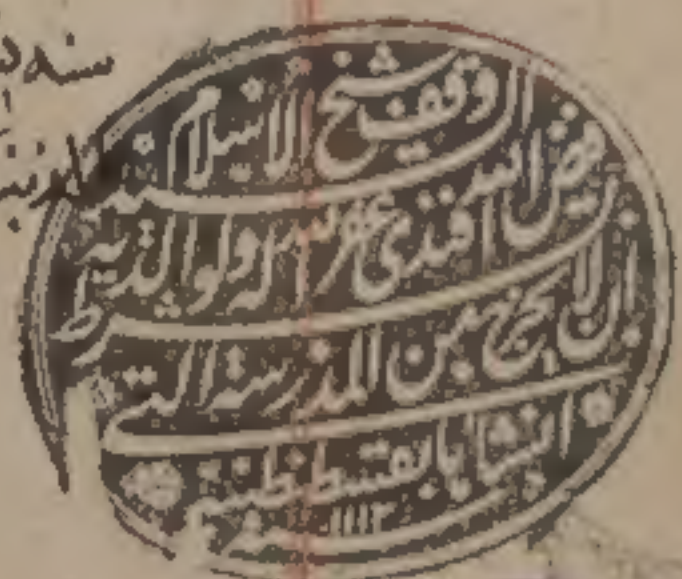 سنه
وقف شيخ الإسلام السيد
فيض الله أفندي غفر الله له ولوالديه
بشرط أن لا يخرج من المدرسة التي
أنشأها بقسطنطينية
سنة ١١١٢